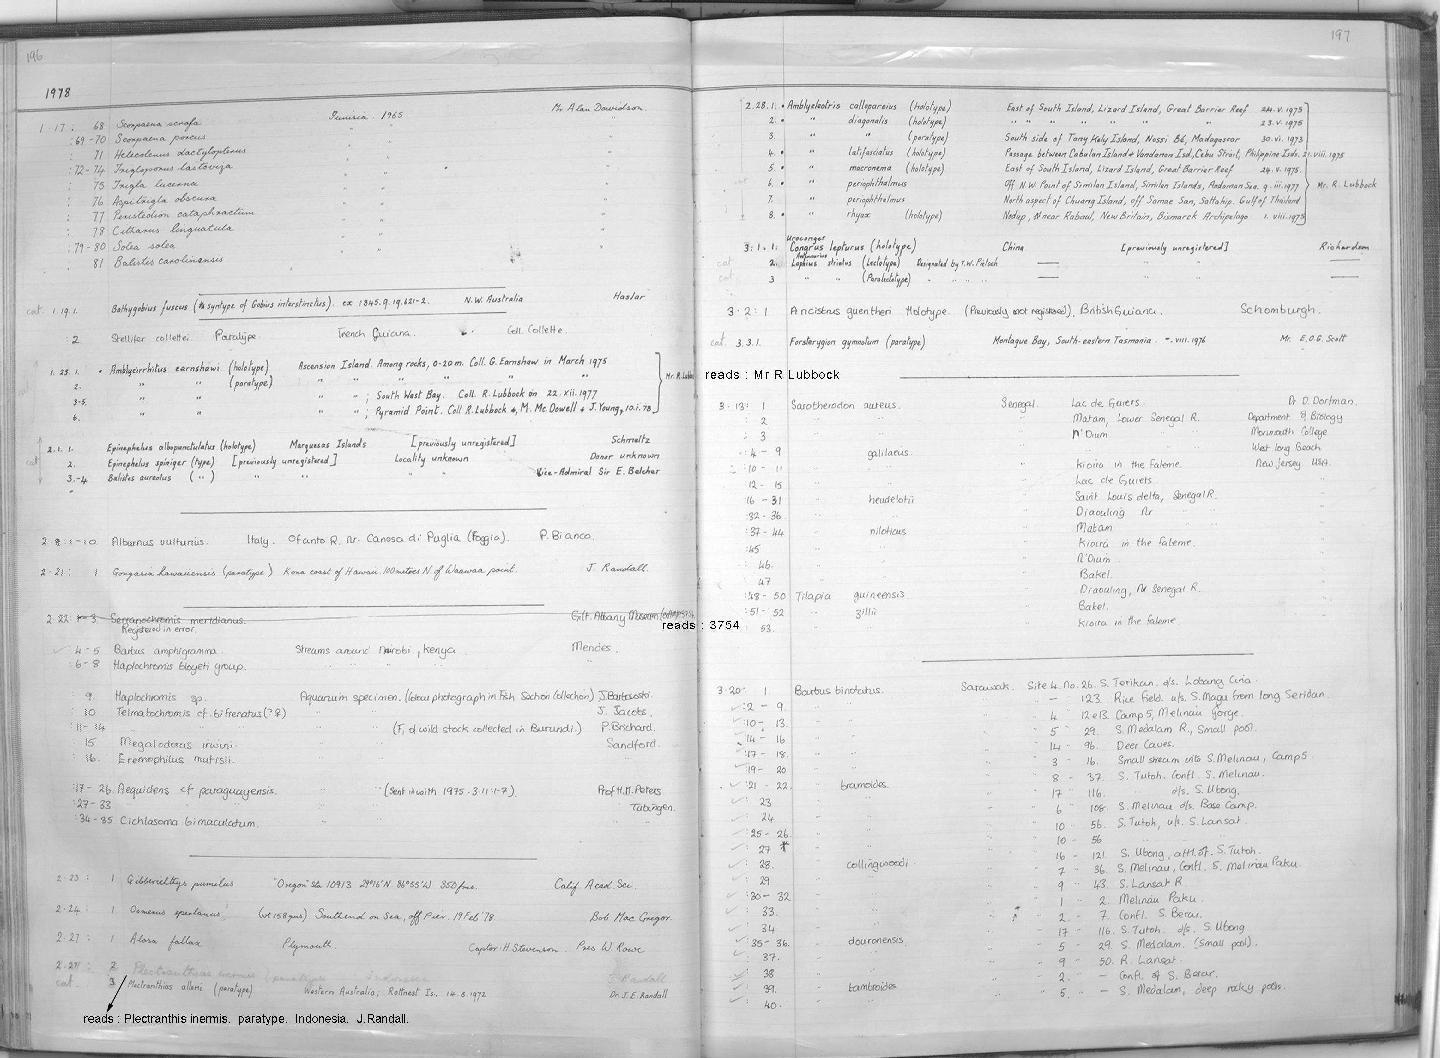 196
1978
Tunisia 1965 Mr Alan Davidson.
1. 17 : 68 Scorpaena scrofa
:69-70 Scorpaena porcus
: 71 Helicolenus dactylopterus
:72-74 Trigloporus lastoviza
: 75 Trigla lucerna
: 76 Aspitrigla obscura
: 77 Peristedion cataphractum
: 78 Citharus linguatula
:79-80 Solea solea
: 81 Balistes carolinensis
cat. 1.19.1. Bathygobius fuscus (syntype of Gobius interstinctus). ex 1845.9.19.621-2. N.W. Australia Haslar
: 2 Stellifer collettei Paratype French Guiana. Coll. Collette.
1.23.1. • Amblycirrhitus earnshawi (holotype) Ascension Island. Among rocks, 0-20 m. Coll. G. Earnshaw in March 1975
2. " " (paratype) " " " " " " "
3-5. " " " " ; South West Bay. Coll. R. Lubbock on 22.xii.1977
6. " " " " ; Pyramid Point. Coll R. Lubbock &, M. McDowell & J. Young, 10.i.78
Mr. R. Lubb
reads : Mr R Lubbock
2.1.1. Epinephelus albopunctulatus (holotype) Marquesas Islands [previously unregistered] Schmeltz
cat 2. Epinephelus spiniger (type) [previously unregistered] Locality unknown Donor unknown
3.-4 Balistes aureolus ( " ) " " " " Vice-Admiral Sir E. Belcher
2.8:1-10 Alburnus vulturius. Italy. Ofanto R. Nr. Canosa di Puglia (Foggia). P. Bianco.
2.21: 1 Gorgasia hawaiiensis (paratype) Kona coast of Hawaii. 100 metres N. of Wawaa point. J. Randall.
2.22: 1-3 Serranochromis meridianus. Gift. Albany Museum
Registered in error.
reads : 3754
4-5 Barbus amphigramma. Streams around Nairobi, Kenya Mendes.
:6-8 Haplochromis bloyeti group. " " "
9 Haplochromis sp. Aquarium specimen. (Colour photograph in Fish Section Collection) J. Bartowski.
: 10 Telmatochromis cf. bifrenatus (?♀) J. Jacobs.
:11-14 " " (F1 of wild stock collected in Burundi.) P. Brichard.
: 15 Megalodoras irwini. Sandford.
: 16. Eremophilus mutisii.
:17-26. Aequidens cf paraguayensis. " (Sent in with 1975.3.11:1-7). Prof H.M. Peters
:27-33 Tübingen.
:34-35 Cichlasoma bimaculatum. "
2.23: 1 Gibberichthys pumilus "Oregon" Sta. 10913 29°16'N 86°55'W 350 fms. Calif Acad Sci.
2.24: 1 Osmerus eperlanus (wt 158 gms) Southend on Sea, off Pier. 19 Feb '78 Bob Mac Gregor.
2.27: 1 Alosa fallax Plymouth. Captor: H. Stevenson. Pres W. Rowe
2.27: 2 Plectranthias inermis (paratype) Indonesia J. Randall
cat. 3 Plectranthias alleni (paratype) Western Australia; Rottnest Is. 14.8.1972 Dr. J.E. Randall
reads : Plectranthis inermis. paratype. Indonesia. J.Randall.
197
2.28.1. • Amblyeleotris callopareius (holotype) East of South Island, Lizard Island, Great Barrier Reef 24.v.1975
2. • " diagonalis (holotype) " " " " " " 23.v.1975
3. " " (paratype) South side of Tany Kely Island, Nossi Bé, Madagascar 30.vi.1973
4. • " latifasciatus (holotype) Passage between Cabulan Island & Vandanon Isd, Cebu Strait, Philippine Isds. 21.viii.1975
5. • " macronema (holotype) East of South Island, Lizard Island, Great Barrier Reef 24.v.1975.
6. • " periophthalmus Off N.W. Point of Similan Island, Similan Islands, Andaman Sea. 9.iii.1977 Mr. R. Lubbock
7. " periophthalmus North aspect of Chuang Island, off Samae San, Sattahip. Gulf of Thailand
8. • " rhyax (holotype) Nodup, Nnear Rabaul, New Britain, Bismarck Archipelago 1.viii.1975
Uroconger
3:1.1: Congrus lepturus (holotype) China [previously unregistered] Richardson
Antennarius
cat 2. Lophius striatus (Lectotype) Designated by T.W. Pietsch — " " —
cat 3 " " (Paralectotype) " " " " — " " —
3.2:1 Ancistrus guentheri Holotype. (Previously not registered), British Guiana. Schomburgh.
cat. 3.3.1. Forsterygion gymnotum (paratype) Montague Bay, South-eastern Tasmania -.viii.1976 Mr. E.O.G. Scott
3.13: 1 Sarotherodon aureus. Senegal. Lac de Guiers. Dr D. Dorfman.
: 2 " " " Matam, Lower Senegal R. Department of Biology
: 3 " " " N'Dium Monmouth College
:4-9 " galilaeus. " " West Long Beach
:10-11 " " " Kioira in the Faleme. New Jersey USA.
:12-15 " " " Lac de Guiers.
:16-31 " heudelotii " Saint Louis delta, Senegal R.
:32-36 " " " Diaouling Nr "
:37-44 " niloticus. " Matam
:45 " " " Kioira in the Faleme.
:46. " " " N'Dium
: 47 " " " Bakel.
:48-50 Tilapia guineensis " Diaouling, Nr Senegal R.
:51-52 " zillii " Bakel.
: 53. " " " Kioira in the Faleme.
3.20: 1 Barbus binotatus. Sarawak. Site 4. No. 26. S. Terikan. d/s. Lobang Cina.
:2-9. " " " — 123. Rice Field. u/s. S. Magu from Long Seridan.
:10-13. " " " 4 12&13. Camp 5, Melinau Gorge.
:14-16 " " " 5 29. S. Medalam R., Small pool.
:17-18. " " " 14 96. Deer Caves.
:19-20 " " " 3 16. Small stream into S. Melinau, Camp 5.
:21-22. " bramoides. " 8 37. S. Tutoh. Confl. S. Melinau.
: 23 " " " 17 116. " d/s. S. Ubong.
: 24 " " " 6 108. S. Melinau d/s. Base Camp.
:25-26. " " " 10 56. S. Tutoh, u/s. S. Lansat.
: 27 " " " 10 56 "
: 28. " collingwoodi. " 16 121. S. Ubong, afft. of. S. Tutoh.
: 29 " " " 7 36. S. Melinau, Confl. S. Melinau Paku.
:30-32 " " " 9 43. S. Lansat R.
: 33. " " " 1 2. Melinau Paku.
: 34 " " " 2 7. Confl. S. Berar.
:35-36. " douronensis. " 17 116. S. Tutoh. d/s. S. Ubong
: 37. " " " 5 29. S. Medalam. (Small pool).
: 38 " " " 9 50. R. Lansat.
: 39. " tambroides " 2 — Confl. of S. Berar.
: 40. " " " 5 — S. Medalam, deep rocky pools.